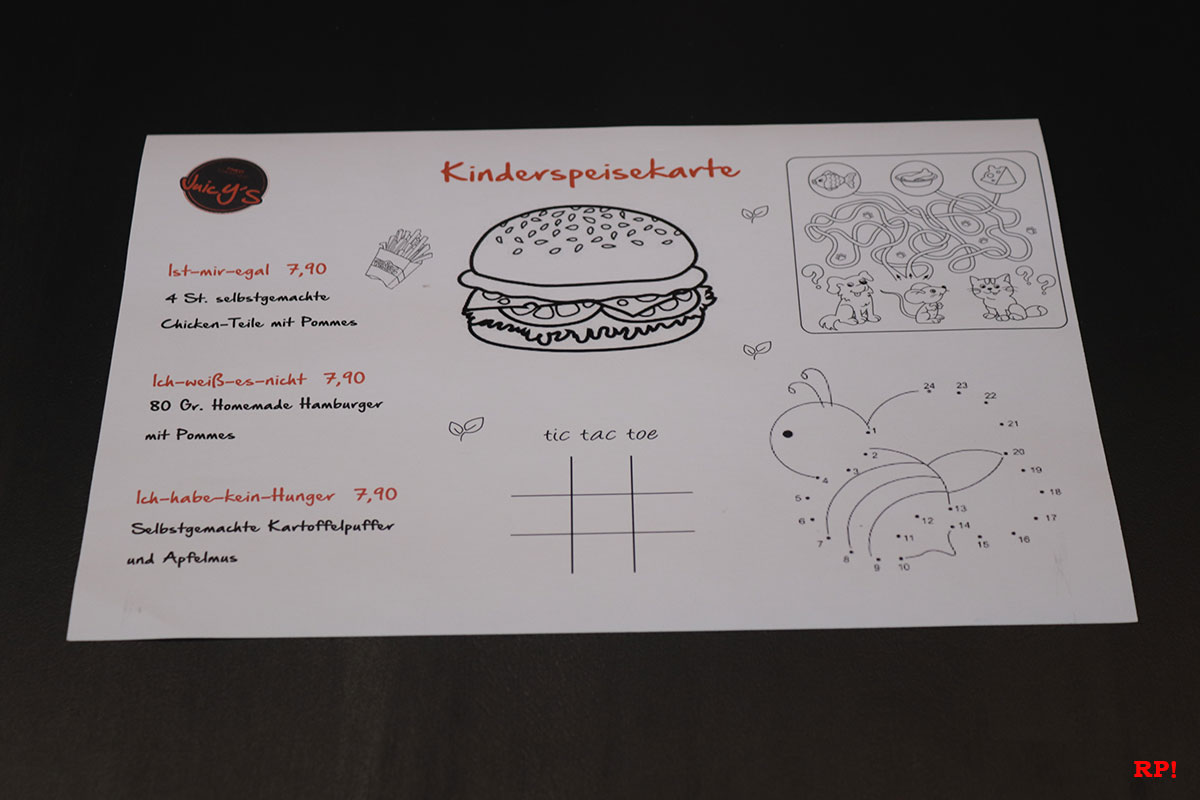 Juicy's
Kinderspeisekarte
Ist-mir-egal 7,90
4 St. selbstgemachte
Chicken-Teile mit Pommes
Ich-weiß-es-nicht 7,90
80 Gr. Homemade Hamburger
mit Pommes
Ich-habe-kein-Hunger 7,90
Selbstgemachte Kartoffelpuffer
und Apfelmus
tic tac toe
? ? ?
1
2
3
4
5
6
7
8
9
10
11
12
13
14
15
16
17
18
19
20
21
22
23
24
RP!